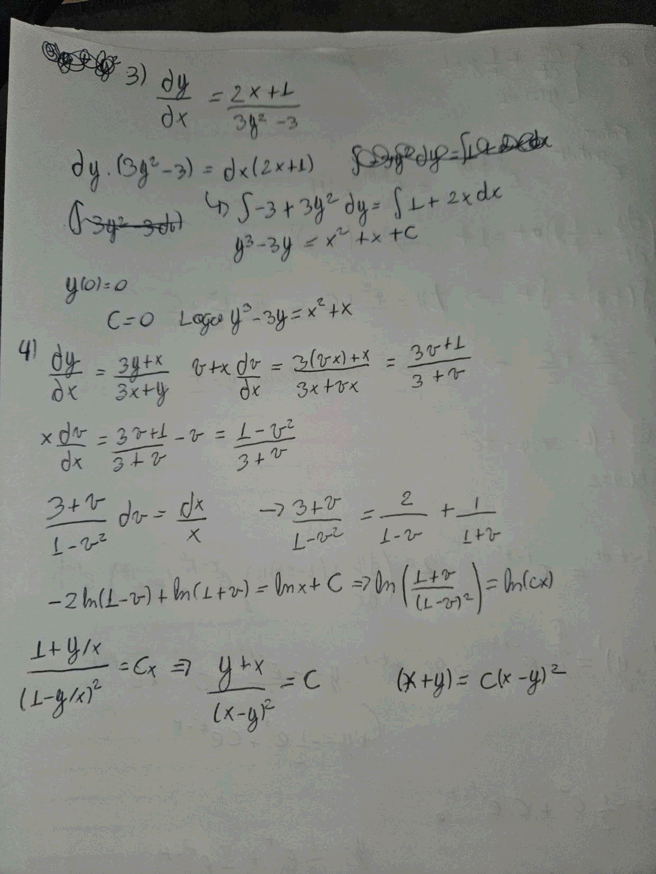 3) dy/dx = (2x+1)/(3y²-3)
dy.(3y²-3) = dx(2x+1)
↳ ∫-3+3y² dy = ∫1+2x dx
y³-3y = x²+x+C
y(0)=0
C=0 Logo y³-3y=x²+x
4) dy/dx = (3y+x)/(3x+y) v+x dv/dx = (3(vx)+x)/(3x+vx) = (3v+1)/(3+v)
x dv/dx = (3v+1)/(3+v) - v = (1-v²)/(3+v)
(3+v)/(1-v²) dv = dx/x → (3+v)/(1-v²) = 2/(1-v) + 1/(1+v)
-2ln(1-v)+ln(1+v) = lnx+C ⇒ ln((1+v)/(1-v)²) = ln(cx)
(1+y/x)/(1-y/x)² = Cx ⇒ (y+x)/(x-y)² = C (x+y) = C(x-y)²